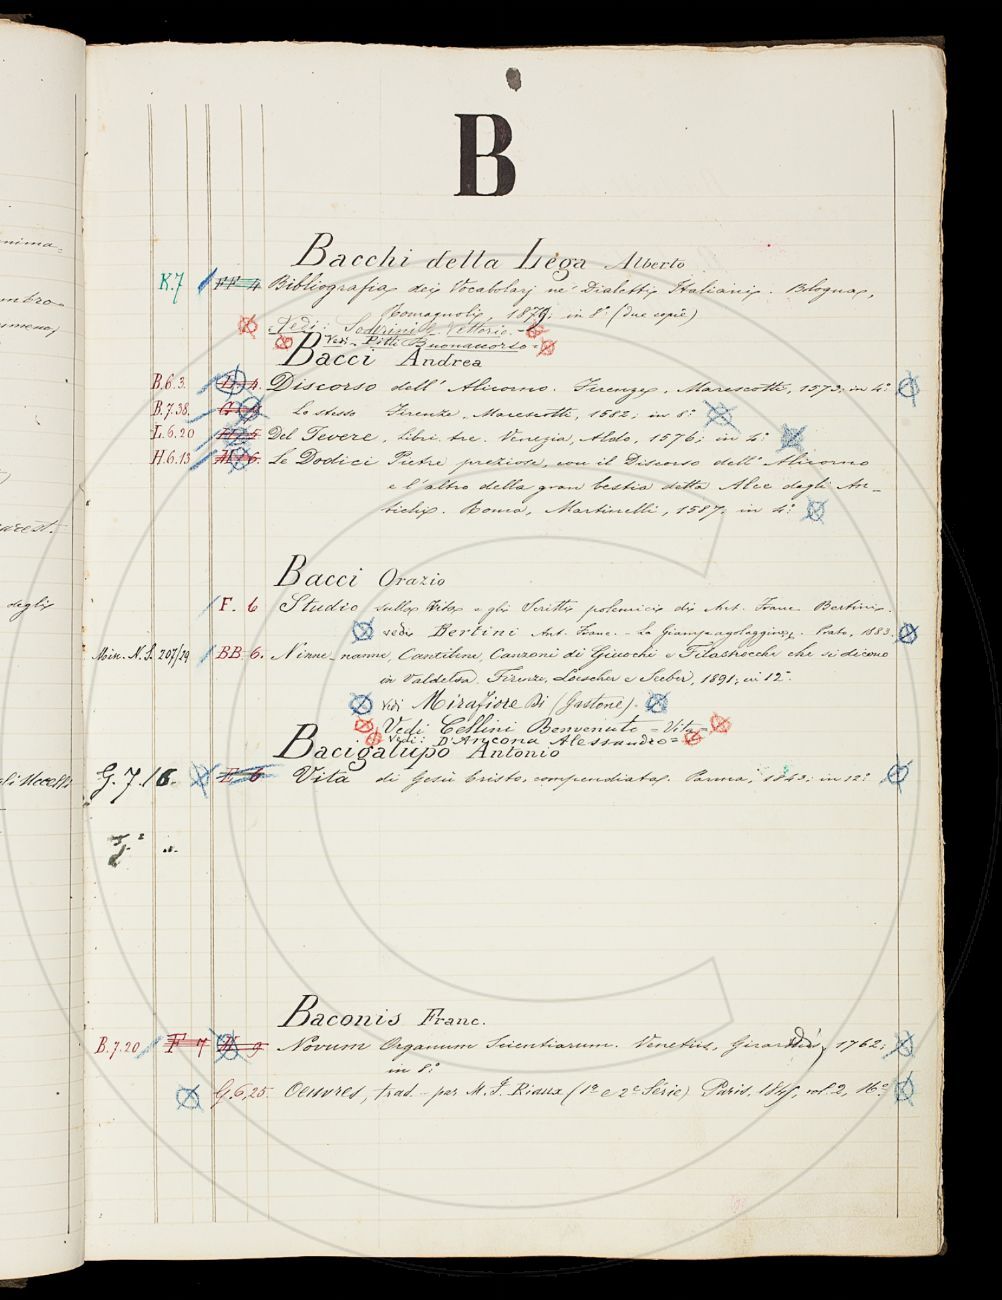 B
Bacchi della Lega Alberto
K.7 FF 4 Bibliografia dei Vocabolarj ne' Dialetti Italiani. Bologna,
Romagnoli, 1879; in 8° (due copie)
Vedi: Soderini Vettorio.
Vedi. Pitti Buonaccorso
Bacci Andrea
B.6.3. 4. Discorso dell' Alicorno. Firenze, Marescotti, 1573; in 4°
B.7.38. Lo stesso Firenze, Marescotti, 1582; in 8°
L.6.20 5 Del Tevere, libri tre. Venezia, Aldo, 1576; in 4°
H.6.13 6. Le Dodici Pietre preziose, con il Discorso dell' Alicorno
e l'altro della gran bestia detta Alce dagli An-
tichi. Roma, Martinelli, 1587; in 4°
Bacci Orazio
F. 6 Studio sulla Vita e gli Scritti polemici di Ant. Franc. Bertini.
vedi Bertini Ant. Franc. - La Giampagolaggine. Prato, 1883.
Min. N.S. 207/19 BB 6. Ninne-nanne, Cantilene, Canzoni di Giuochi e Filastrocche che si dicono
in Valdelsa. Firenze, Loescher e Seeber, 1891; in 12°
Vedi Mirafiore Di (Gastone).
Vedi Cellini Benvenuto = Vita =
Vedi: D'Ancona Alessandro =
Bacigalupo Antonio
G. 7. 16. 6 Vita di Gesù Cristo, compendiata. Parma, 1843; in 12°
Baconis Franc.
B.7.20 F 7 9 Novum Organum Scientiarum. Venetiis, Girardi, 1762;
in 8°
G.6,25. Oeuvres, trad. par M. F. Riaux (1e e 2e Série) Paris, vol. 2, 16°